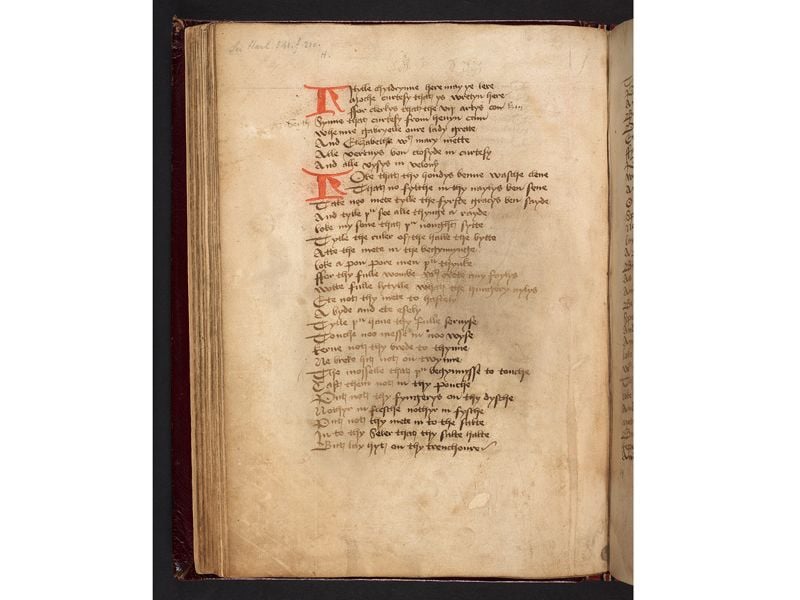 See Harl. 541. f. 210.
H.
Rytylle chyldrynne here may ye lere
Moche curtesy that ys wretyn here
ffor clerkys that the vij artys con
Synne that curtesy from hevyn cam
Whenne gabryelle oure lady grette
And Elizabethe wt mary mette
Alle vertuys ben closyde in curtesy
And alle vysys in velony
Roke that thy hondys benne wasche clene
That no fylthe in thy naylys ben sene
Take noo mete tylle the fyrste gracys ben sayde
And tylle þu see alle thynge a rayde
loke my sone that þu nought sytte
Tylle the ruler of the halle the bytte
Atte the mete in the begynnynge
loke a pon pore men þu thynke
ffor thy fulle wombe
Wotte fulle lytylle what the hungery aylys
Ete not thy mete to hastely
A byde and ete esely
Tylle þu have thy fulle servyse
Touche noo messe in noo wyse
kerve not thy brede to thynne
Ne breke hit not on twynne
The mosselle that þu begynnysse to touche
Cast them not in thy pouche
Put not thy fyngerys on thy dysche
Nothyr in flesche nothyr in fysche
Put not thy mete in to the salte
In to thy Seler that thy salte halte
But lay hyt on thy trenchoure